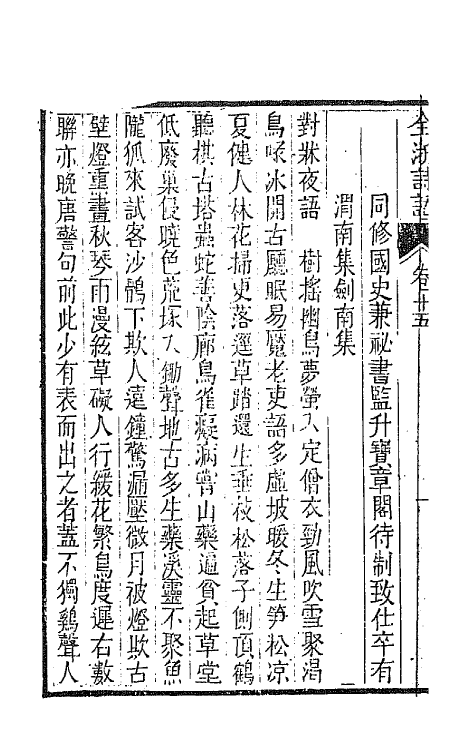 全浙詩話 卷十五
同修國史兼祕書監升寶章閣待制致仕卒有
渭南集劍南集
對牀夜語 樹搖幽鳥夢螢入定僧衣勁風吹雪聚渴
鳥啄冰開古廳眠易魘老吏語多虛坡暖冬生笋松凉
夏健人林花掃更落逕草踏還生垂枝松落子側頂鶴
聽棋古塔蟲蛇善陰廊鳥雀癡病嘗山藥遍貧起草堂
低廢巢侵曉色荒塚入鋤聲地古多生藥溪靈不聚魚
隴狐來試客沙鶻下欺人遠鐘驚漏壓微月被燈欺古
壁燈熏畫秋琴雨漫絃草礙人行緩花繁鳥度遲右數
聯亦晚唐警句前此少有表而出之者蓋不獨鷄聲人